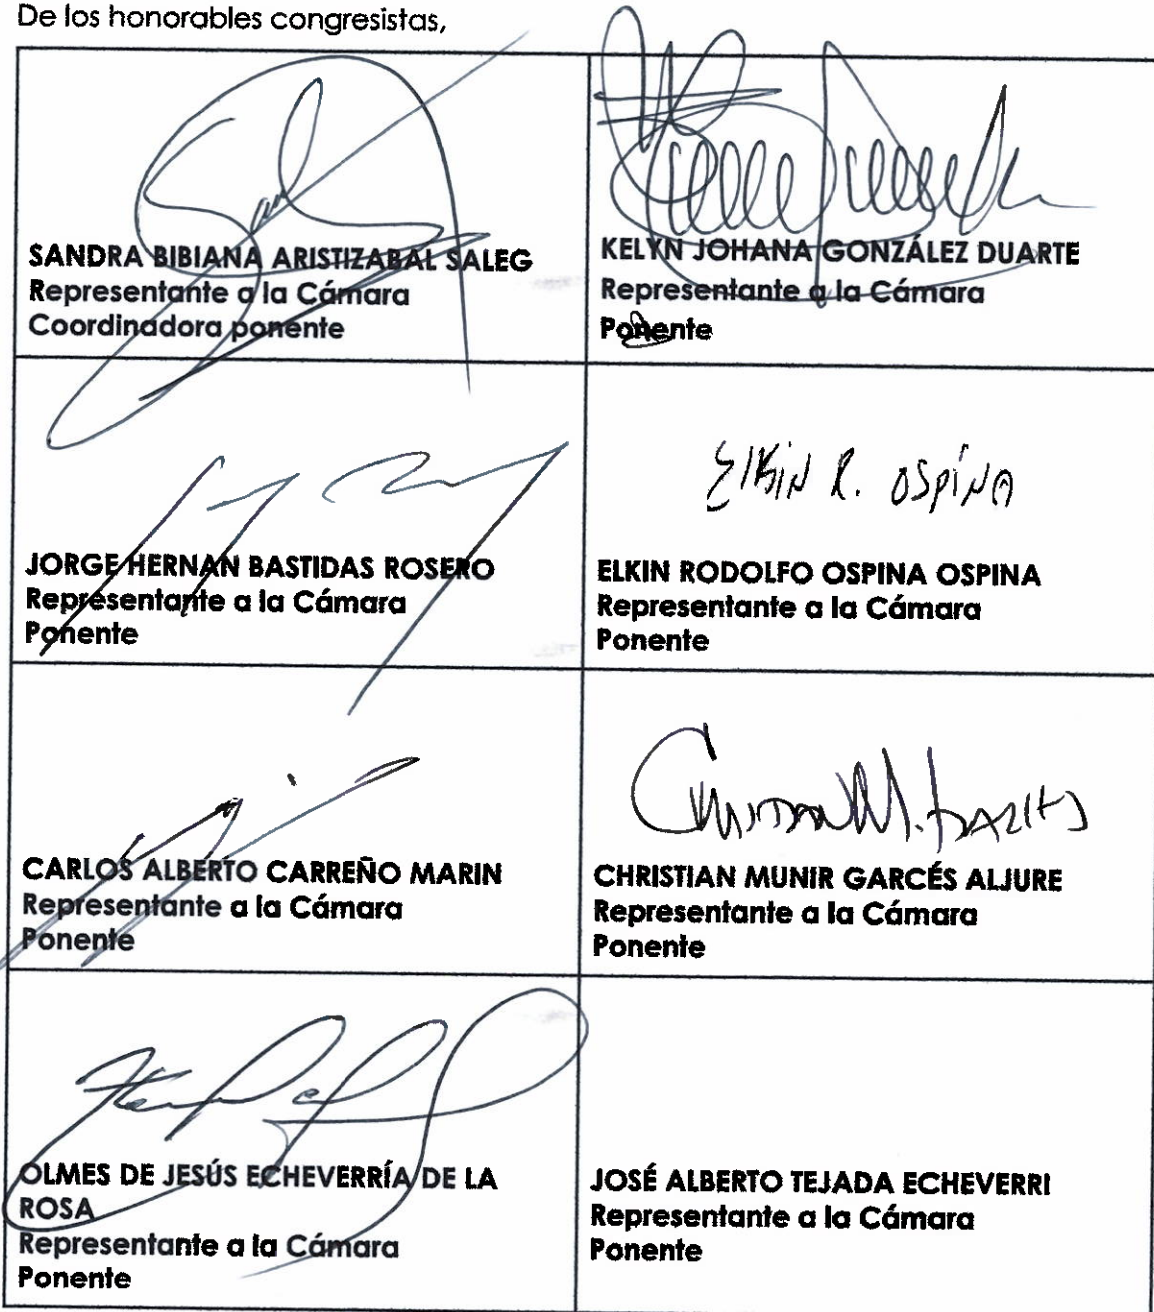 De los honorables congresistas,
SANDRA BIBIANA ARISTIZABAL SALEG
Representante a la Cámara
Coordinadora ponente
KELYN JOHANA GONZÁLEZ DUARTE
Representante a la Cámara
Ponente
JORGE HERNAN BASTIDAS ROSERO
Representante a la Cámara
Ponente
ElKiN R. OSpiNA
ELKIN RODOLFO OSPINA OSPINA
Representante a la Cámara
Ponente
CARLOS ALBERTO CARREÑO MARIN
Representante a la Cámara
Ponente
CHRISTIAN MUNIR GARCÉS ALJURE
Representante a la Cámara
Ponente
OLMES DE JESÚS ECHEVERRÍA DE LA
ROSA
Representante a la Cámara
Ponente
JOSÉ ALBERTO TEJADA ECHEVERRI
Representante a la Cámara
Ponente